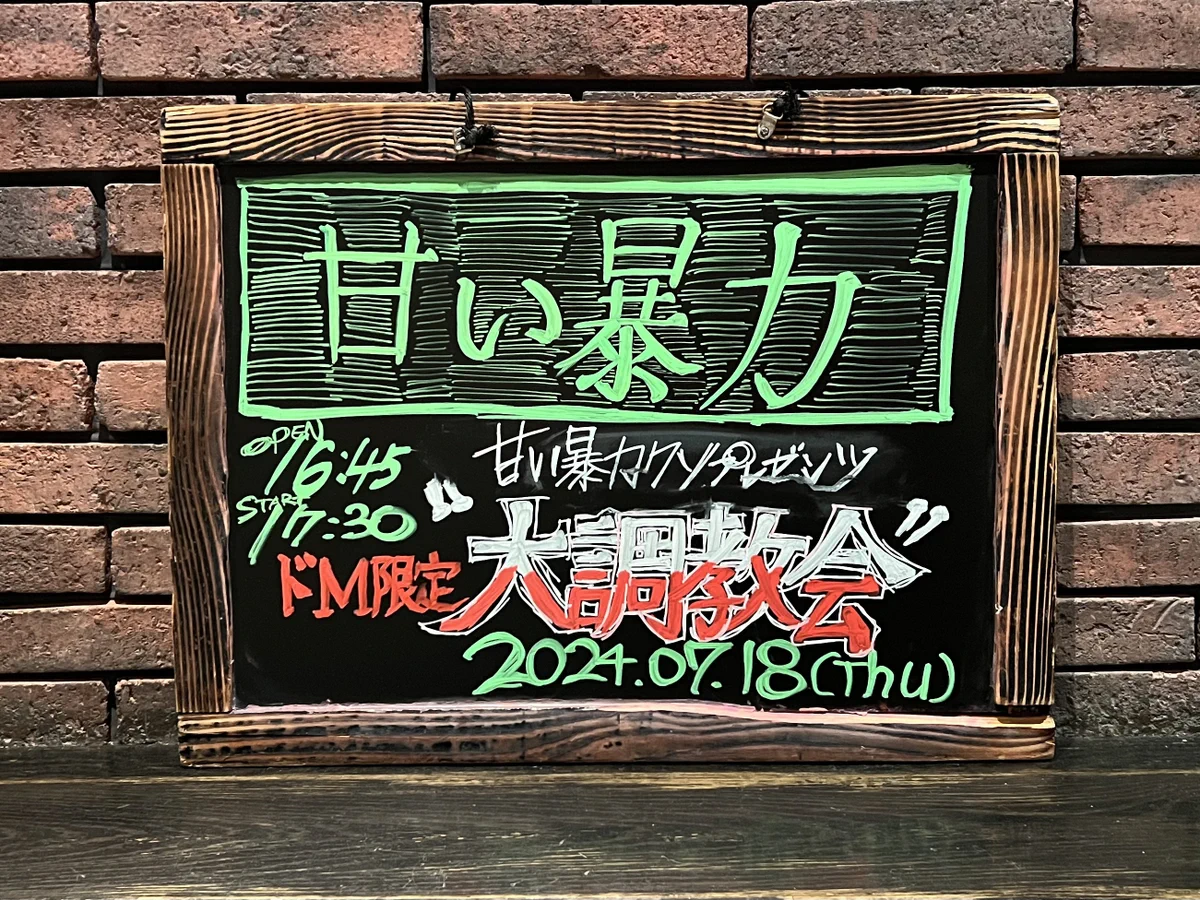 甘い暴力
OPEN 16:45
START 17:30
甘い暴力クソプレゼンツ
ドM限定
"大調教会"
2024.07.18(Thu)